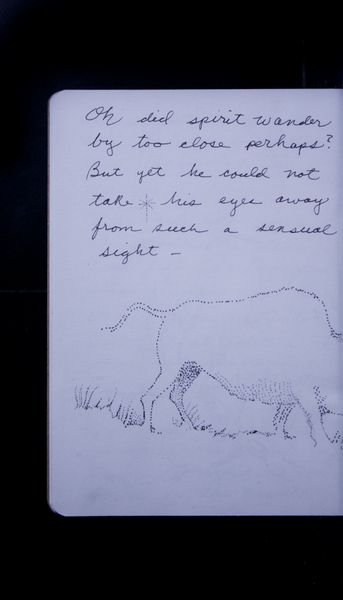 Oh did spirit wander
by too close perhaps?
But yet he could not
take his eyes away
from such a sensual
sight –